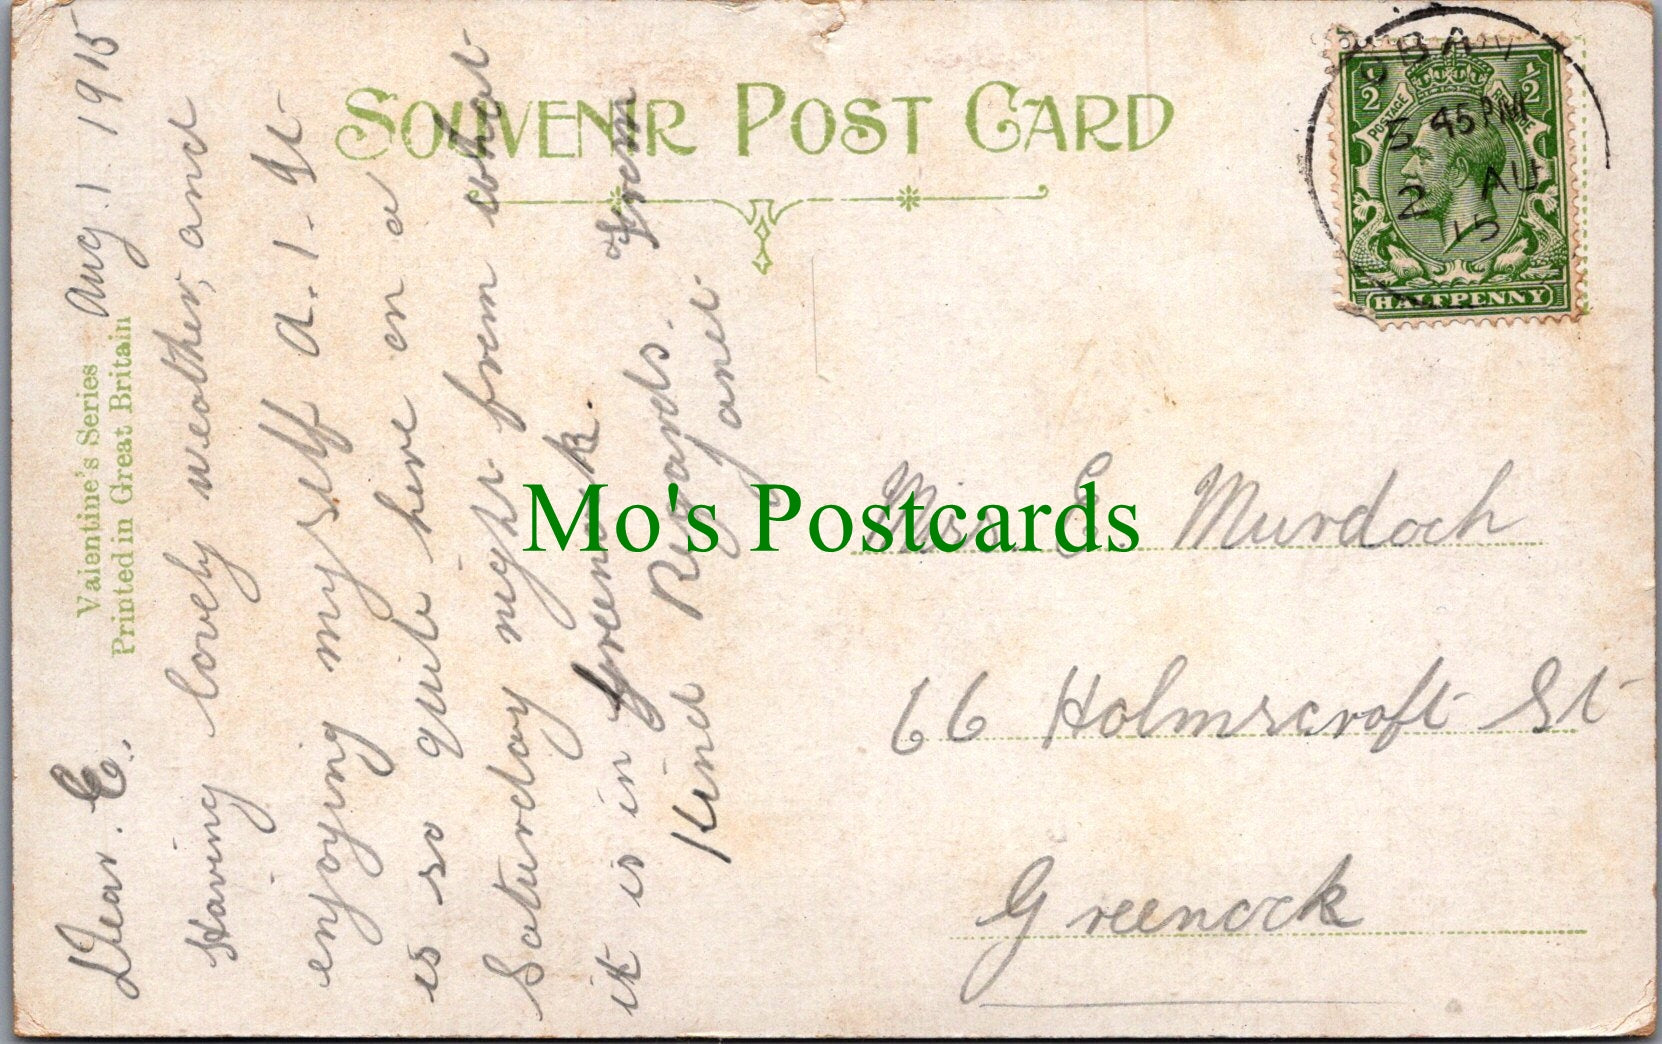 SOUVENIR POST CARD
Valentine's Series
Printed in Great Britain
Aug 1. 1915
Dear E.,
Having lovely weather, and
enjoying myself A.1. It
is so quite here on a
Saturday night from what
it is in Greenock.
Kind Regards. From
Janet
OBAN
5 45 PM
2 AU
15
POSTAGE REVENUE
½ ½
HALFPENNY
Mo's Postcards
Miss E. Murdoch
66 Holmscroft St
Greenock